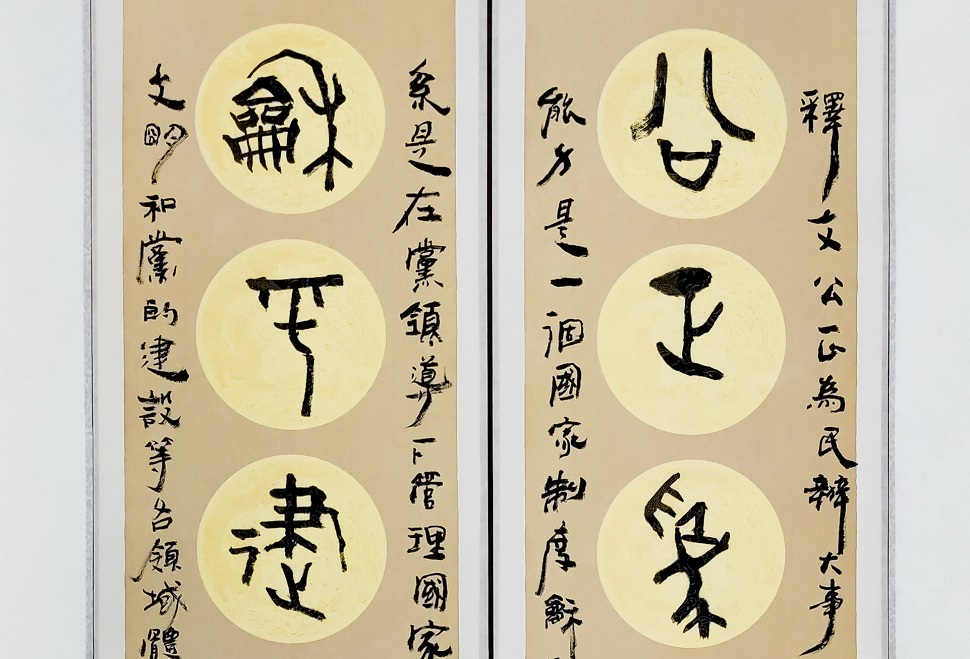 釋文公正為民辦大事
公正為
能力是一個國家制度龢
系是在黨領導下管理國家
龢平建
文明和黨的建設等各領域體